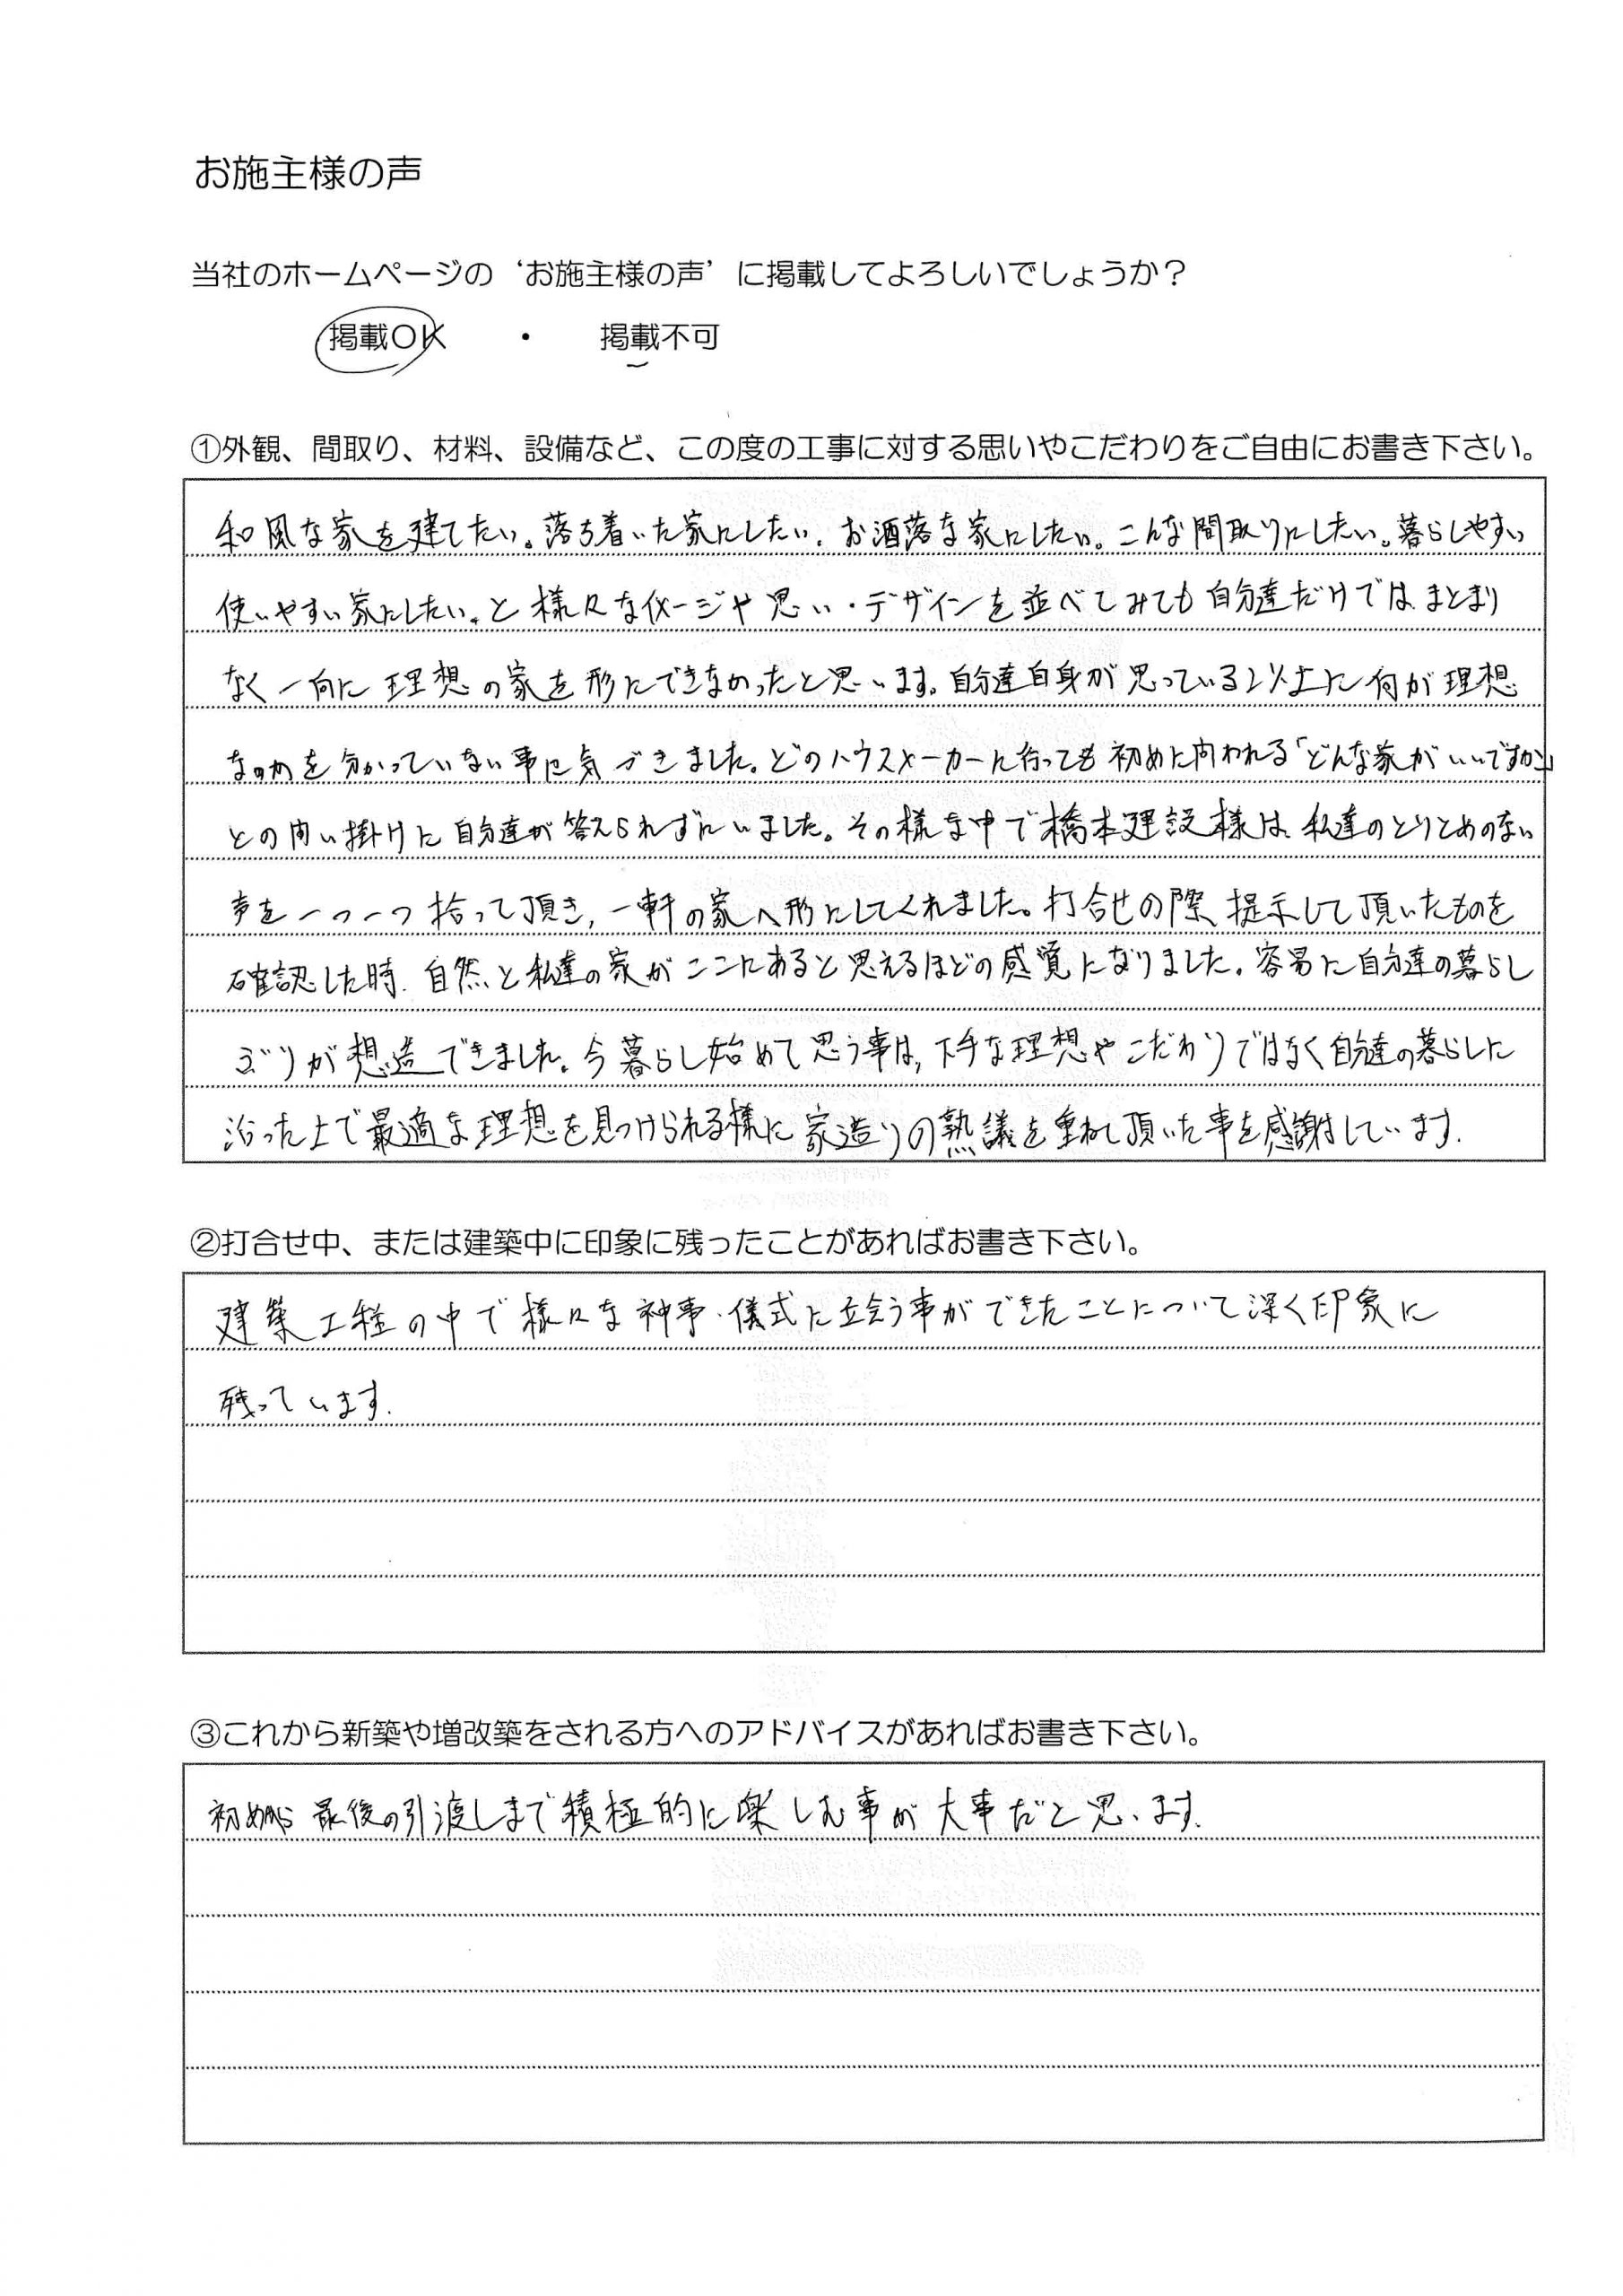 お施主様の声
当社のホームページの‘お施主様の声’に掲載してよろしいでしょうか？
掲載OK ・ 掲載不可
①外観、間取り、材料、設備など、この度の工事に対する思いやこだわりをご自由にお書き下さい。
和風な家を建てたい。落ち着いた家にしたい。お洒落な家にしたい。こんな間取りにしたい。暮らしやすい
使いやすい家にしたい。と様々なイメージや思い・デザインを並べてみても自分達だけではまとまり
なく一向に理想の家を形にできなかったと思います。自分達自身が思っている以上に何が理想
なのかを分かっていない事に気づきました。どのハウスメーカーに行っても初めに問われる「どんな家がいいですか」
との問い掛けに自分達が答えられずにいました。その様な中で橋本建設様は、私達のとりとめのない
声を一つ一つ拾って頂き、一軒の家へ形にしてくれました。打合せの際、提示して頂いたものを
確認した時、自然と私達の家がここにあると思えるほどの感覚になりました。容易に自分達の暮らし
ぶりが想造できました。今暮らし始めて思う事は、下手な理想やこだわりではなく自分達の暮らしに
沿った上で最適な理想を見つけられる様に家造りの熟議を重ねて頂いた事を感謝しています。
②打合せ中、または建築中に印象に残ったことがあればお書き下さい。
建築工程の中で様々な神事・儀式に立会う事ができたことについて深く印象に
残っています。
③これから新築や増改築をされる方へのアドバイスがあればお書き下さい。
初めから最後の引渡しまで積極的に楽しむ事が大事だと思います。